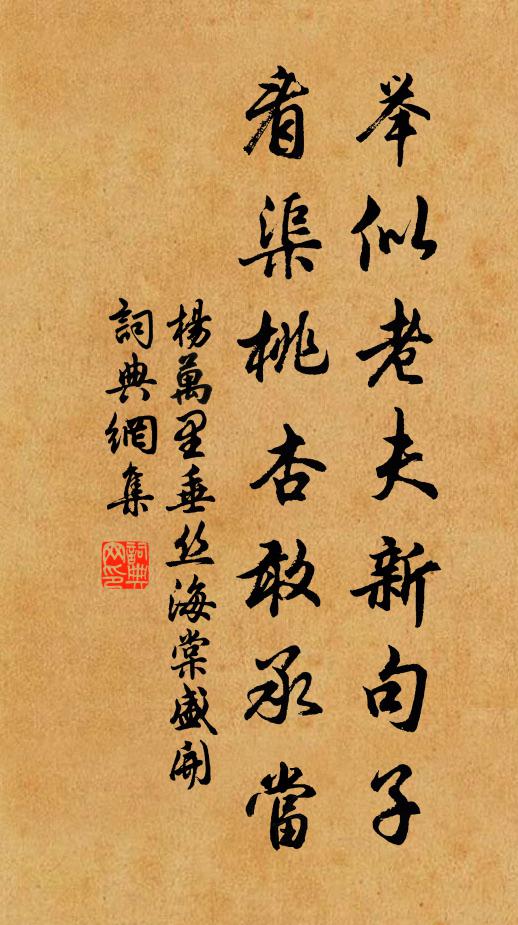 举似老夫新句子
看渠桃杏敢承當
楊萬里垂丝海棠盛開
詞典網集
詞典网印